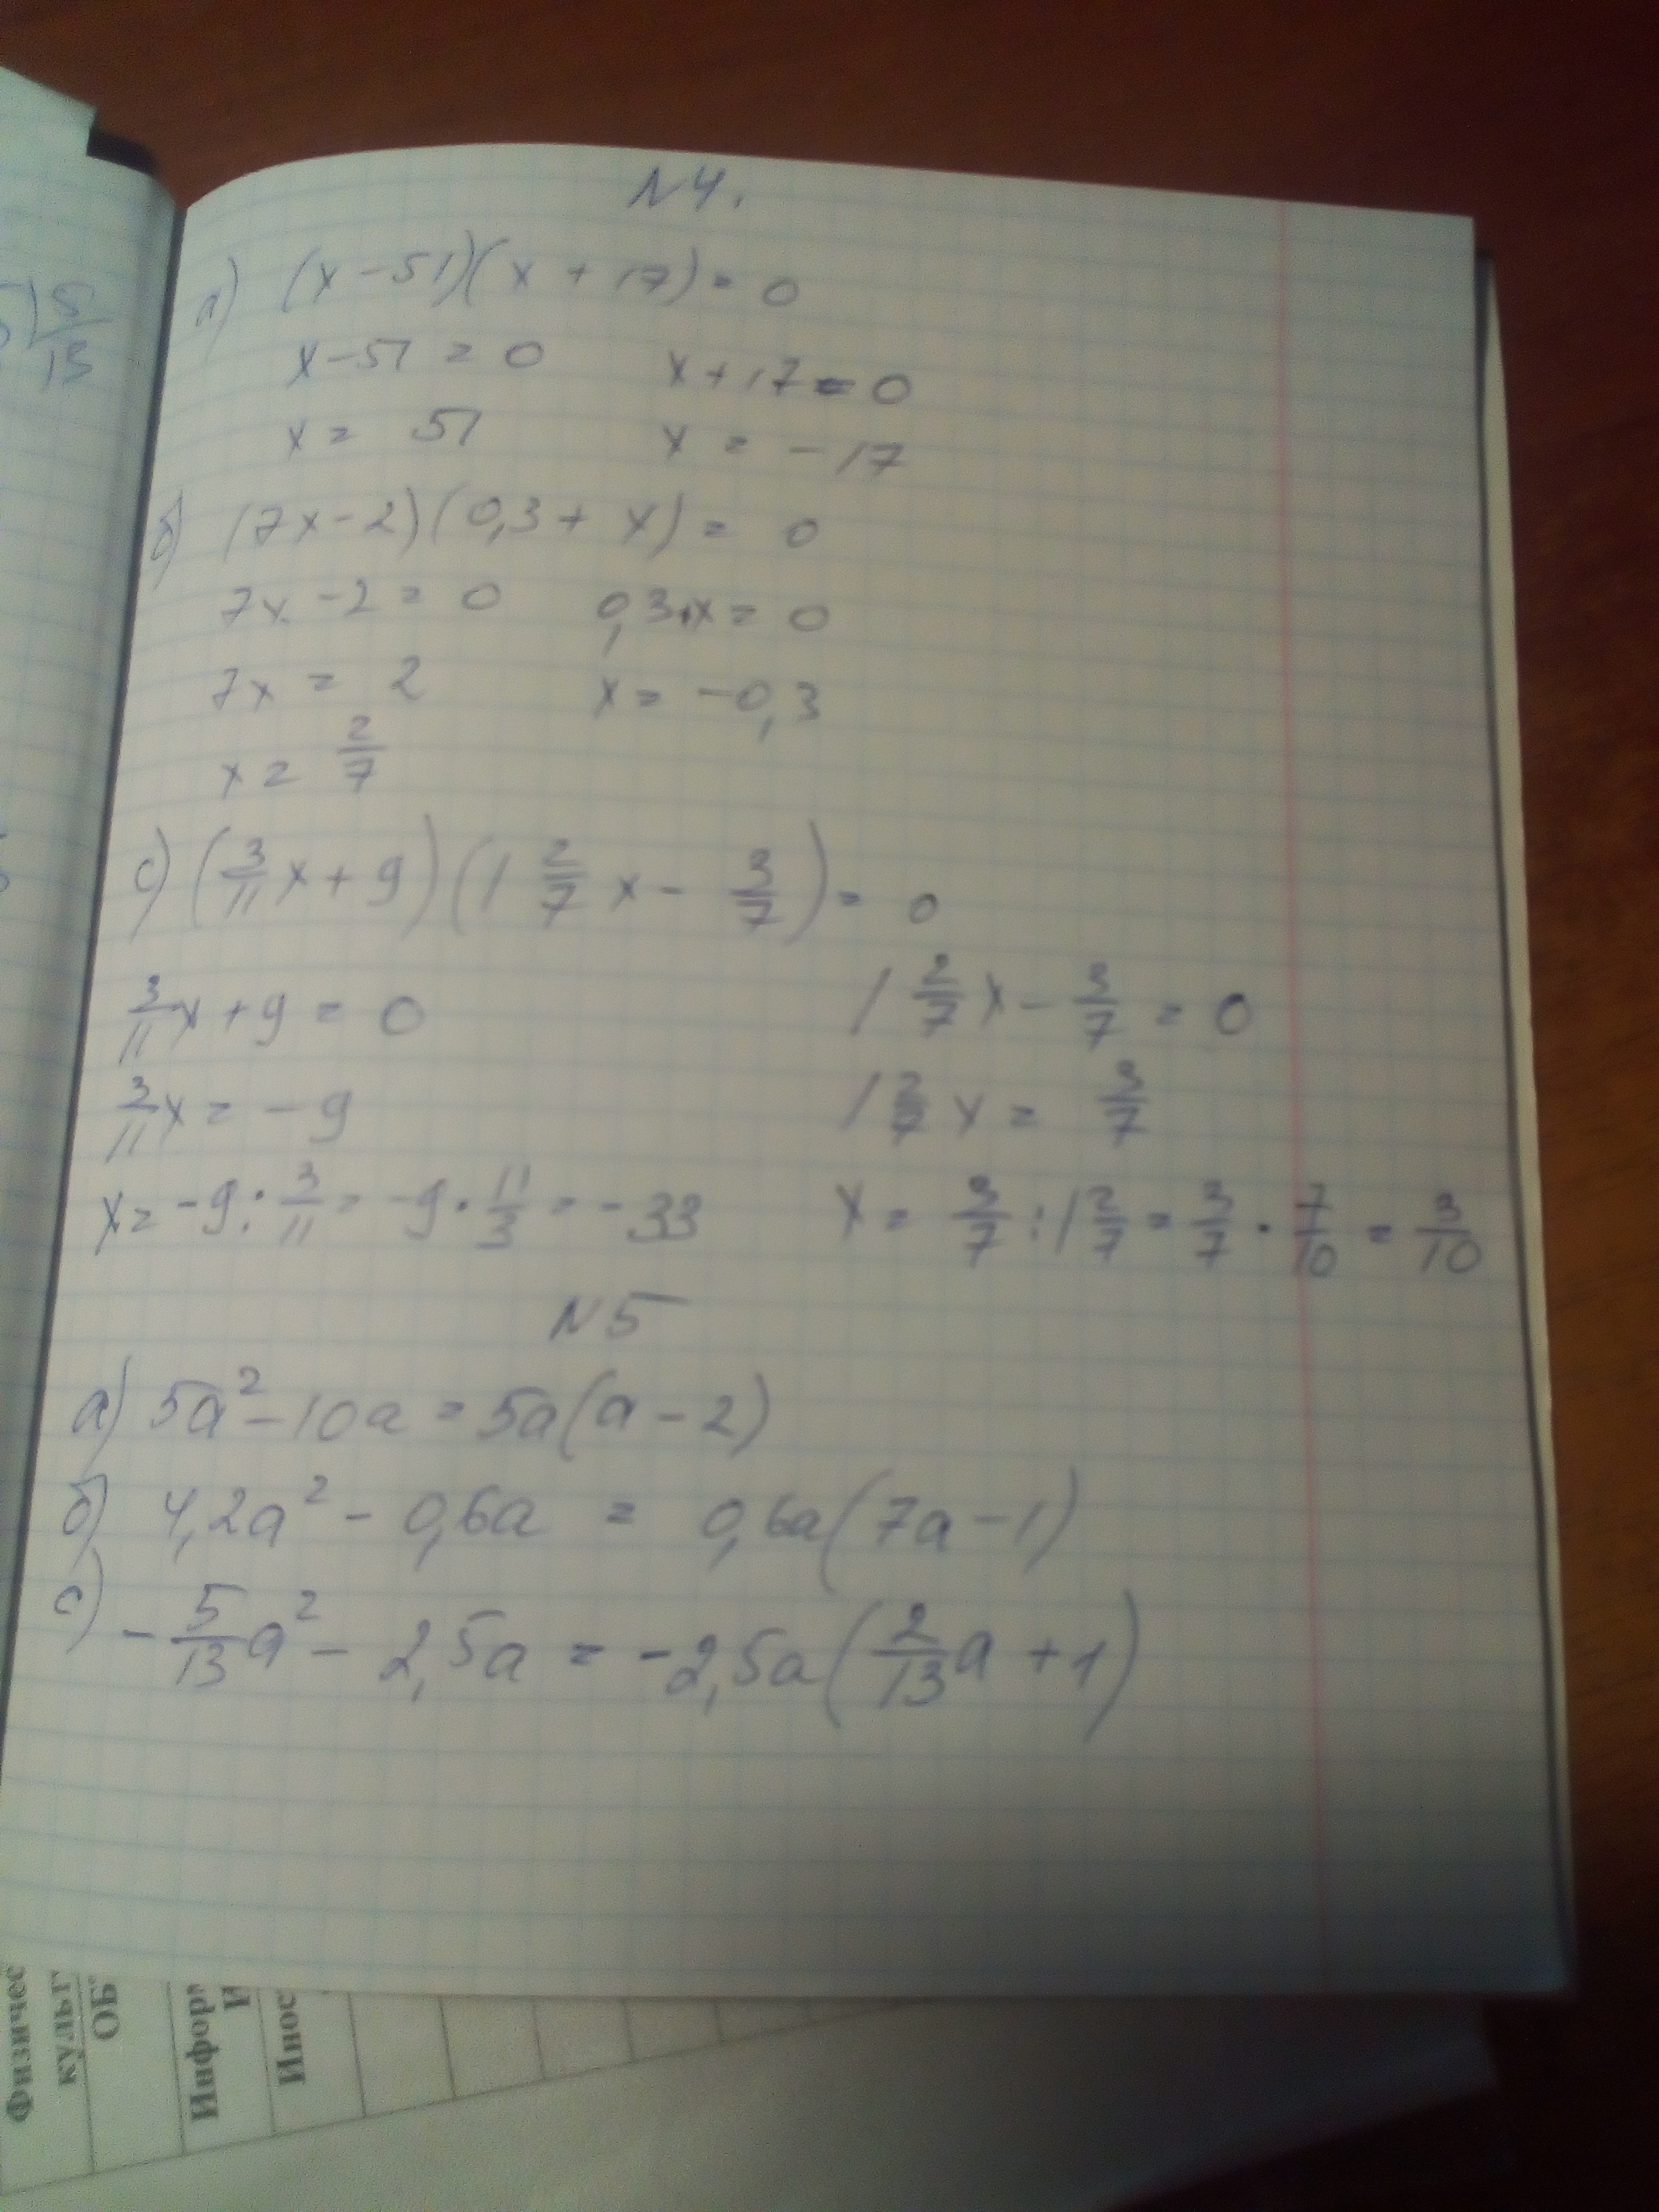 5
13
N4.
а) (x-51)(x+17)=0
x-51=0 x+17=0
x= 51 x = -17
б) (7x-2)(0,3+x)= 0
7x-2=0 0,3+x=0
7x = 2 x= -0,3
x= 2/7
с) (3/11 x+9)(1 2/7 x - 3/7)= 0
3/11 x+9=0 1 2/7 x - 3/7 = 0
3/11 x= -9 1 2/7 x = 3/7
x= -9 : 3/11 = -9 · 11/3 = -33 x = 3/7 : 1 2/7 = 3/7 · 7/10 = 3/10
N5
а) 5a² - 10a = 5a(a-2)
б) 4,2a² - 0,6a = 0,6a(7a-1)
с) - 5/13 a² - 2,5a = -2,5a(2/13 a + 1)
Физичес
культ
ОБ
Инфор
И
Инос